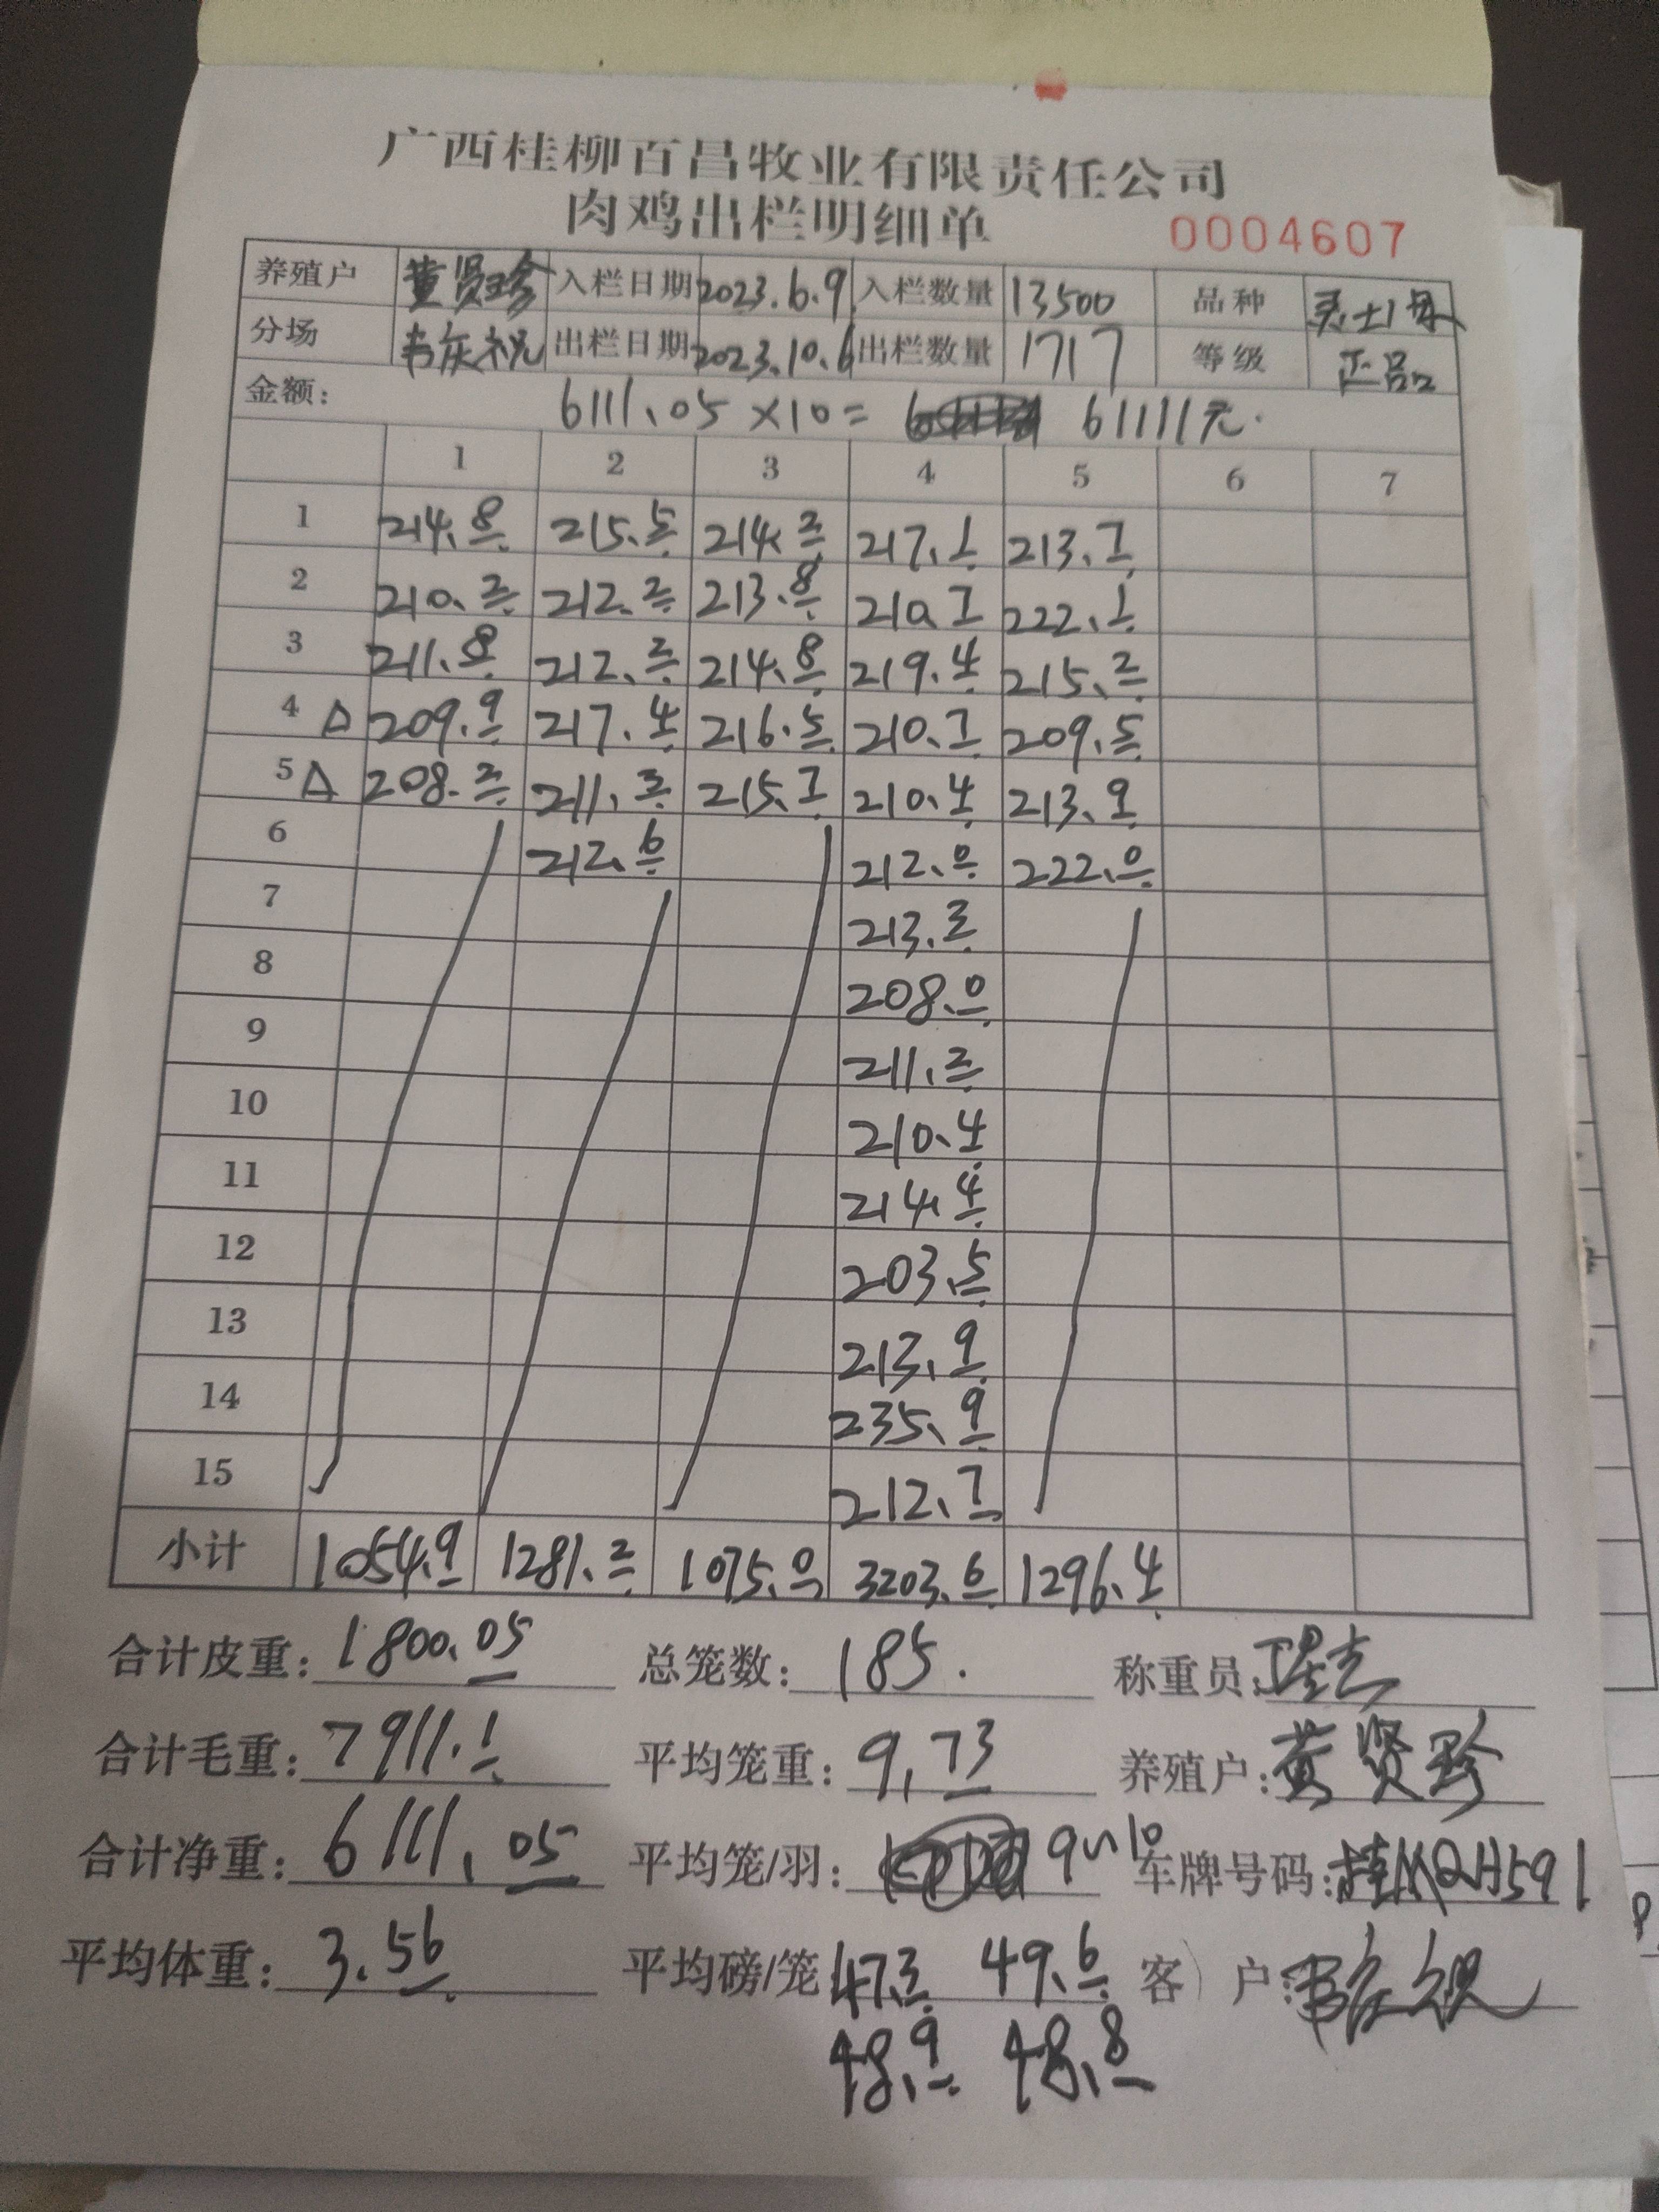 广西桂柳百昌牧业有限责任公司
肉鸡出栏明细单 0004607
养殖户 黄贤珍 入栏日期 2023.6.9 入栏数量 13500 品种
分场 韦庆祝 出栏日期 2023.10.6 出栏数量 1717 等级 正品
金额: 6111.05×10= 61111元.
1 2 3 4 5 6 7
1 214.8 215.5 214.2 217.1 213.7
2 210.2 212.2 213.8 210.7 222.1
3 211.8 212.2 214.8 219.4 215.2
4 △ 209.9 217.4 216.5 210.7 209.5
5 △ 208.2 211.3 215.7 210.4 213.9
6 212.6 212.0 222.0
7 213.3
8 208.0
9 211.2
10 210.4
11 214.4
12 203.5
13 213.9
14 235.9
15 212.7
小计 1054.9 1281.2 1075.0 3203.6 1296.4
合计皮重: 1800.05 总笼数: 185. 称重员:
合计毛重: 7911.1 平均笼重: 9.73 养殖户: 黄贤珍
合计净重: 6111.05 平均笼/羽: 9~10 车牌号码: 桂MQH591
平均体重: 3.56 平均磅/笼 47.3 49.6 客户: 韦庆祝
48.9 48.8